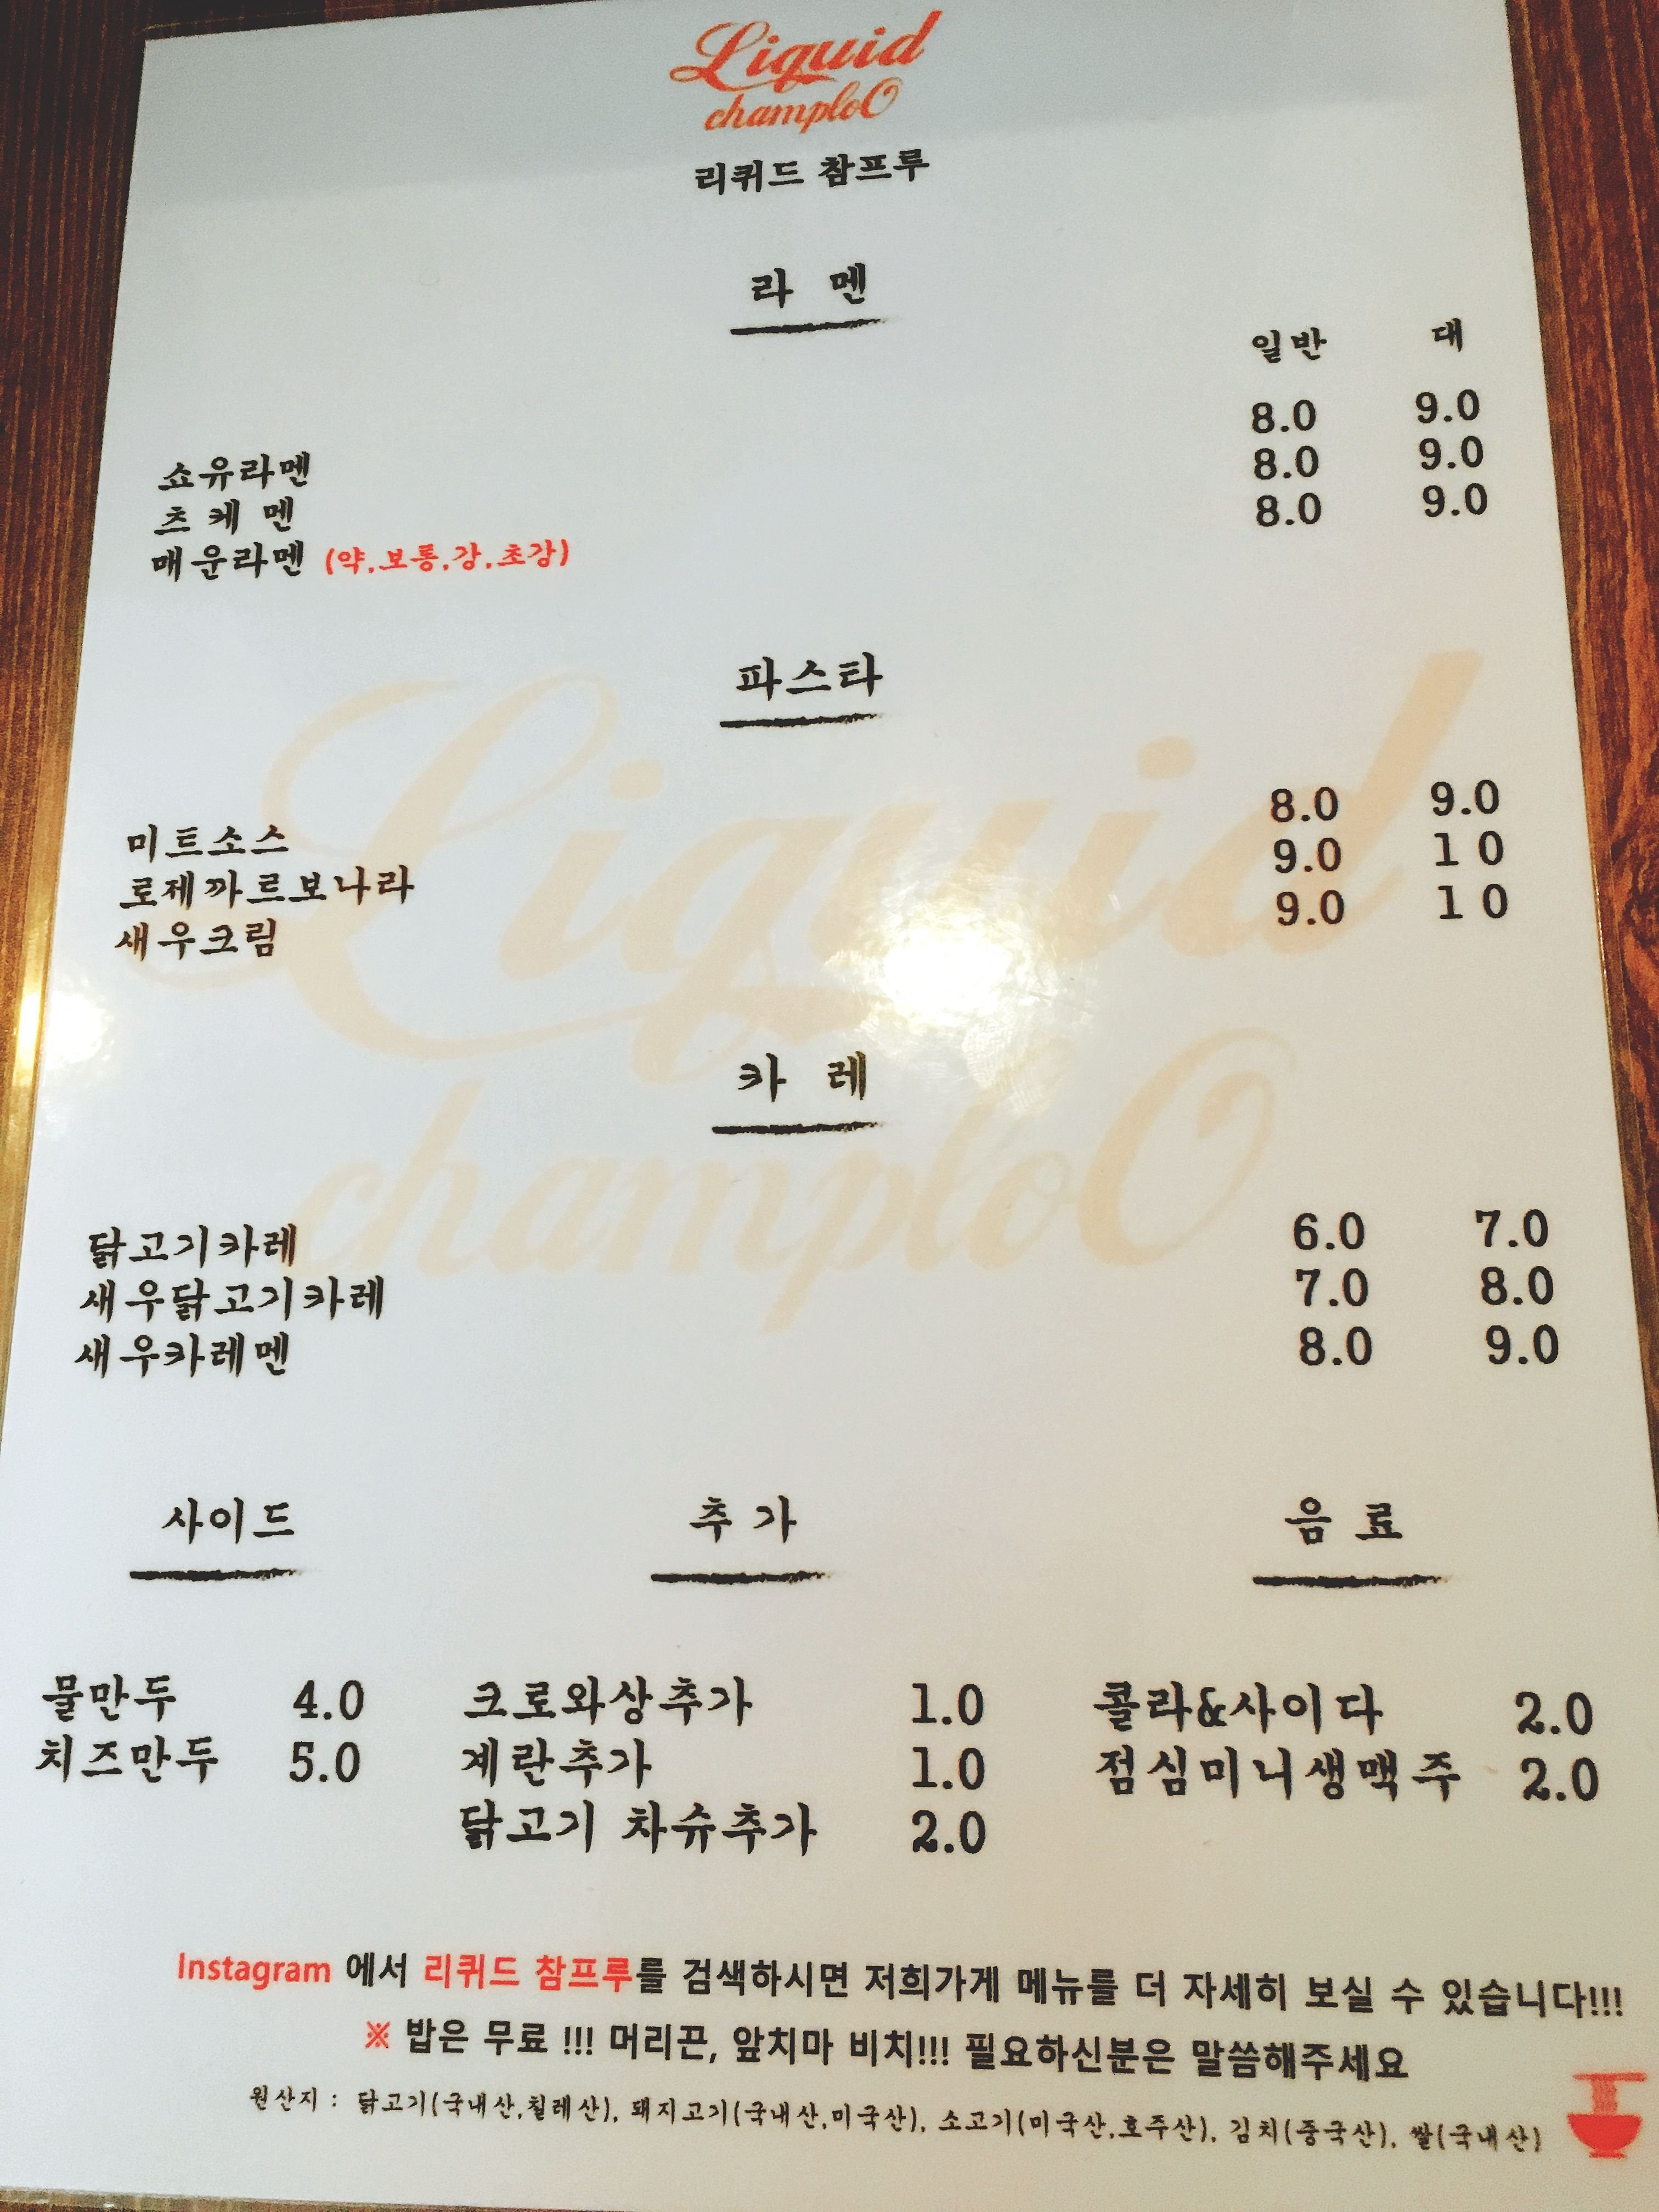 Liquid
champloO
리퀴드 참프루
라 멘
일반 대
쇼유라멘 8.0 9.0
츠케멘 8.0 9.0
매운라멘 (약,보통,강,초강) 8.0 9.0
파스타
미트소스 8.0 9.0
로제까르보나라 9.0 10
새우크림 9.0 10
카 레
닭고기카레 6.0 7.0
새우닭고기카레 7.0 8.0
새우카레멘 8.0 9.0
사이드
물만두 4.0
치즈만두 5.0
추 가
크로와상추가 1.0
계란추가 1.0
닭고기 차슈추가 2.0
음 료
콜라&사이다 2.0
점심미니생맥주 2.0
Instagram 에서 리퀴드 참프루를 검색하시면 저희가게 메뉴를 더 자세히 보실 수 있습니다!!!
※ 밥은 무료 !!! 머리끈, 앞치마 비치!!! 필요하신분은 말씀해주세요
원산지 : 닭고기(국내산,칠레산), 돼지고기(국내산,미국산), 소고기(미국산,호주산), 김치(중국산), 쌀(국내산)
Liquid
champloO